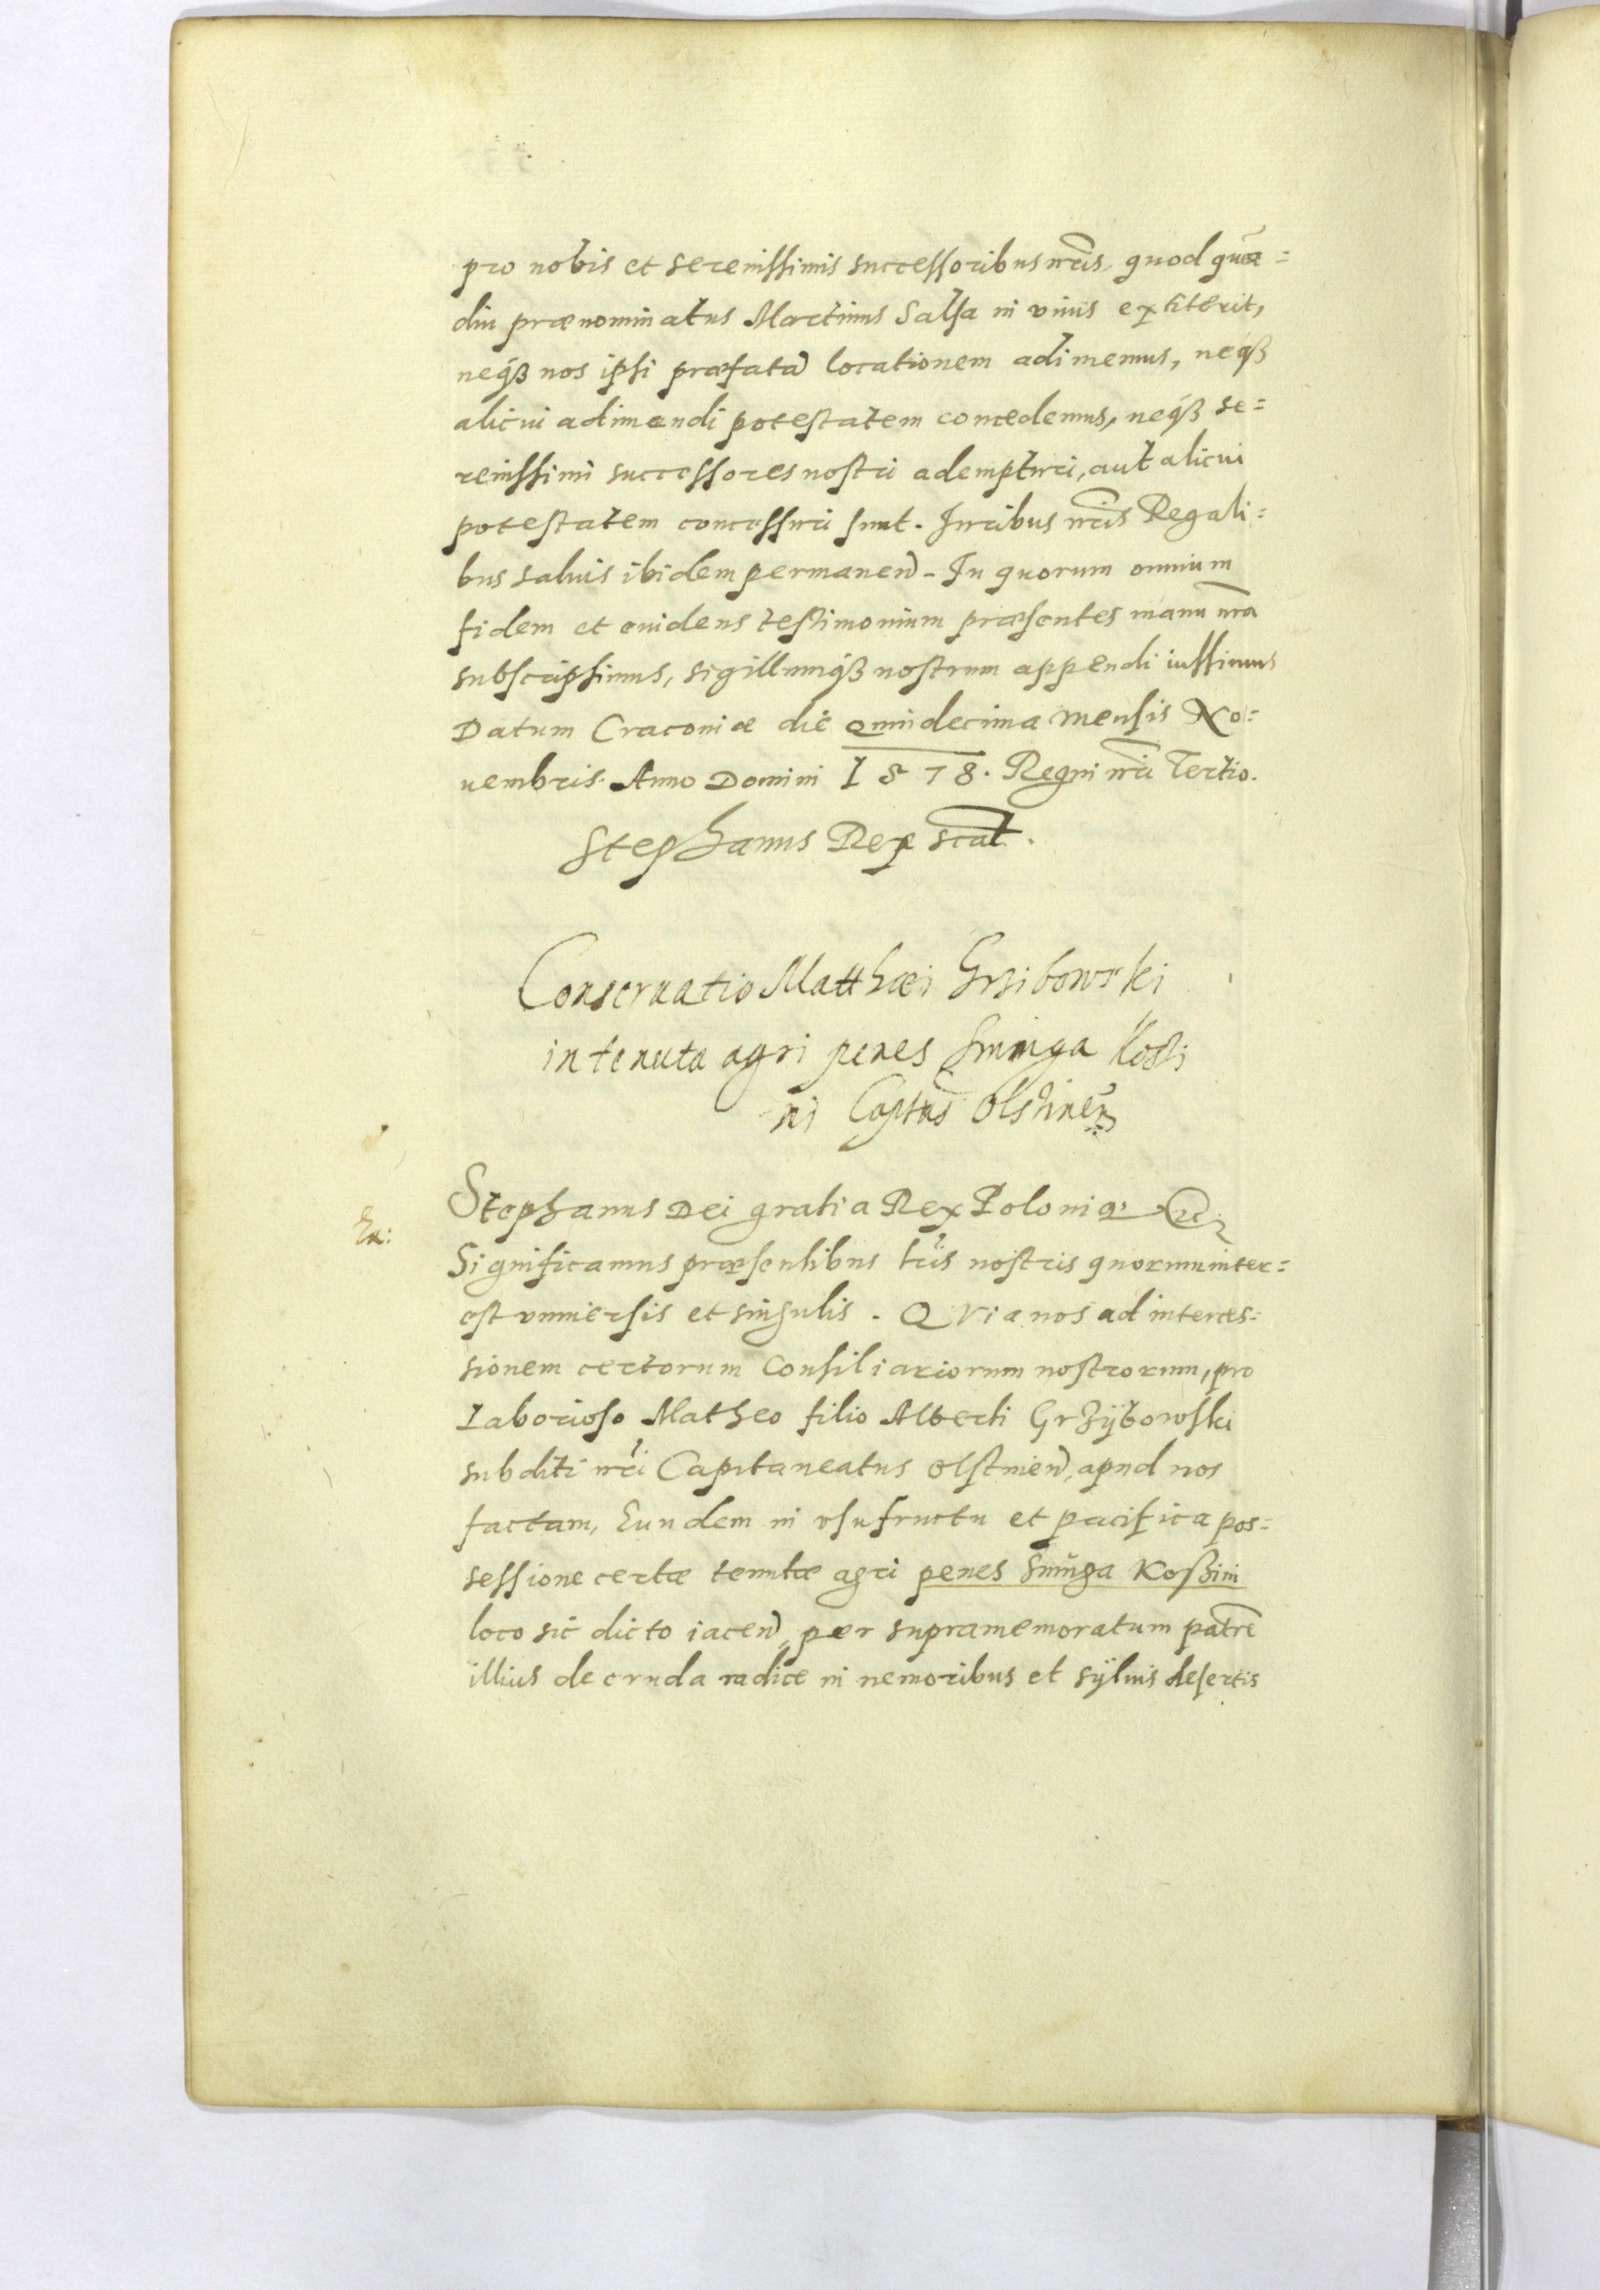 pro nobis et serenissimis successoribus nr̃is, quod quā=
diu prænominatus Martinus Salsa in viuis extiterit,
neqȝ nos ipsi præfatã locationem adimemus, neqȝ
alicui adimendi potestatem concedemus, neqȝ se=
renissimi successores nostri adempturi, aut alicui
potestatem concessuri sunt. Iuribus nr̃is Regali=
bus saluis ibidem permanen̄. In quorum omnium
fidem et euidens testimonium præsentes manu nr̃a
subscripsimus, sigillumqȝ nostrum appendi iussimus
Datum Cracouiæ die quindecima mensis No=
uembris. Anno Domini 1578. Regni nr̃i Tertio.
Stephanus Rex scat̃.
Conseruatio Matthæi Grzibowski
in tenuta agri penes Smuga Kossi
ni Captũs Olstinen̄
Ex:
Stephanus Dei gratia Rex Poloniæ etc:
Significamus præsentibus lr̃is nostris quorum inter=
est vniuersis et singulis. Quia nos ad interces=
sionem certorum Consiliariorum nostrorum, pro
Laborioso Matheo filio Alberti Grzÿbowski
subditi nr̃i Capitaneatus Olstinen̄, apud nos
factam, Eundem in vsufructu et pacifica pos=
sessione certæ tenutæ agri penes Smuga Kossini
loco sic dicto iacen̄, per supramemoratum patrē
illius de cruda radice in nemoribus et sÿluis desertis